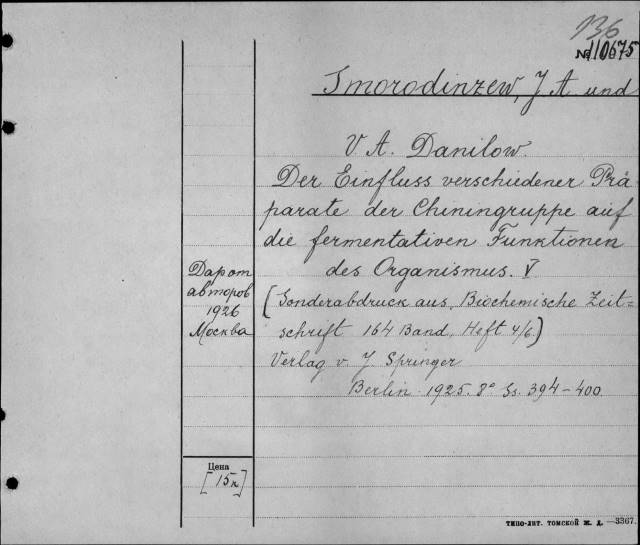 136
№110675
Smorodinzew, J A und
V A. Danilow.
Der Einfluss verschiedener Prä-
parate der Chiningruppe auf
die fermentativen Funktionen
des Organismus. V
[Sonderabdruck aus Biochemische Zeit-
schrift 164 Band, Heft 4/6)
Verlag v. J Springer
Berlin 1925. 8° Ss. 394-400.
Дар от
авторов
1926
Москва
Цена
[15к]
ТИПО-ЛИТ. ТОМСКОЙ Ж. Д. —3367.